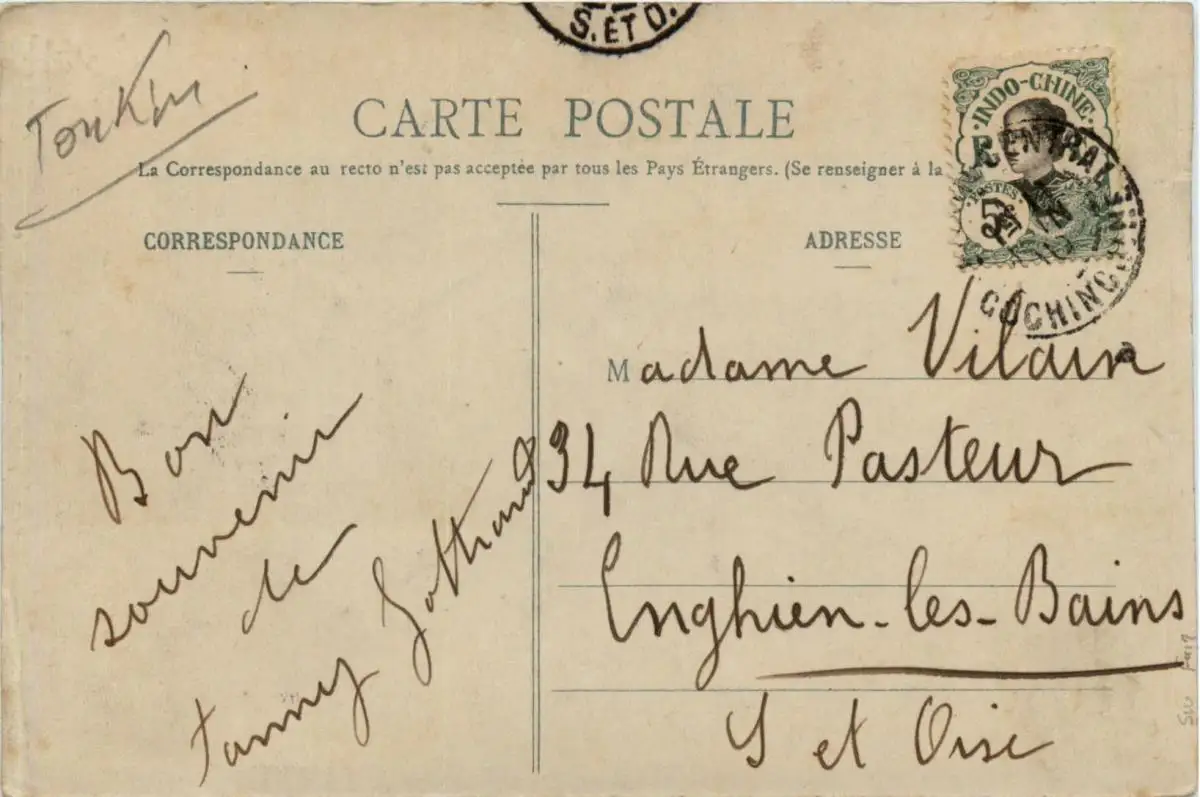 S. ET O.
Tonkin
CARTE POSTALE
La Correspondance au recto n'est pas acceptée par tous les Pays Étrangers. (Se renseigner à la
CORRESPONDANCE
ADRESSE
INDO-CHINE
POSTES
5
CENTRAL
COCHINCHINE
Bon
souvenir
de
Fanny
Madame Vilain
34 Rue Pasteur
Enghien-les-Bains
S et Oise